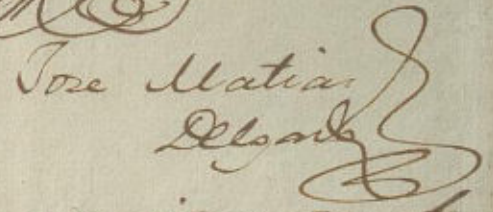 Jose Matias
Delgado